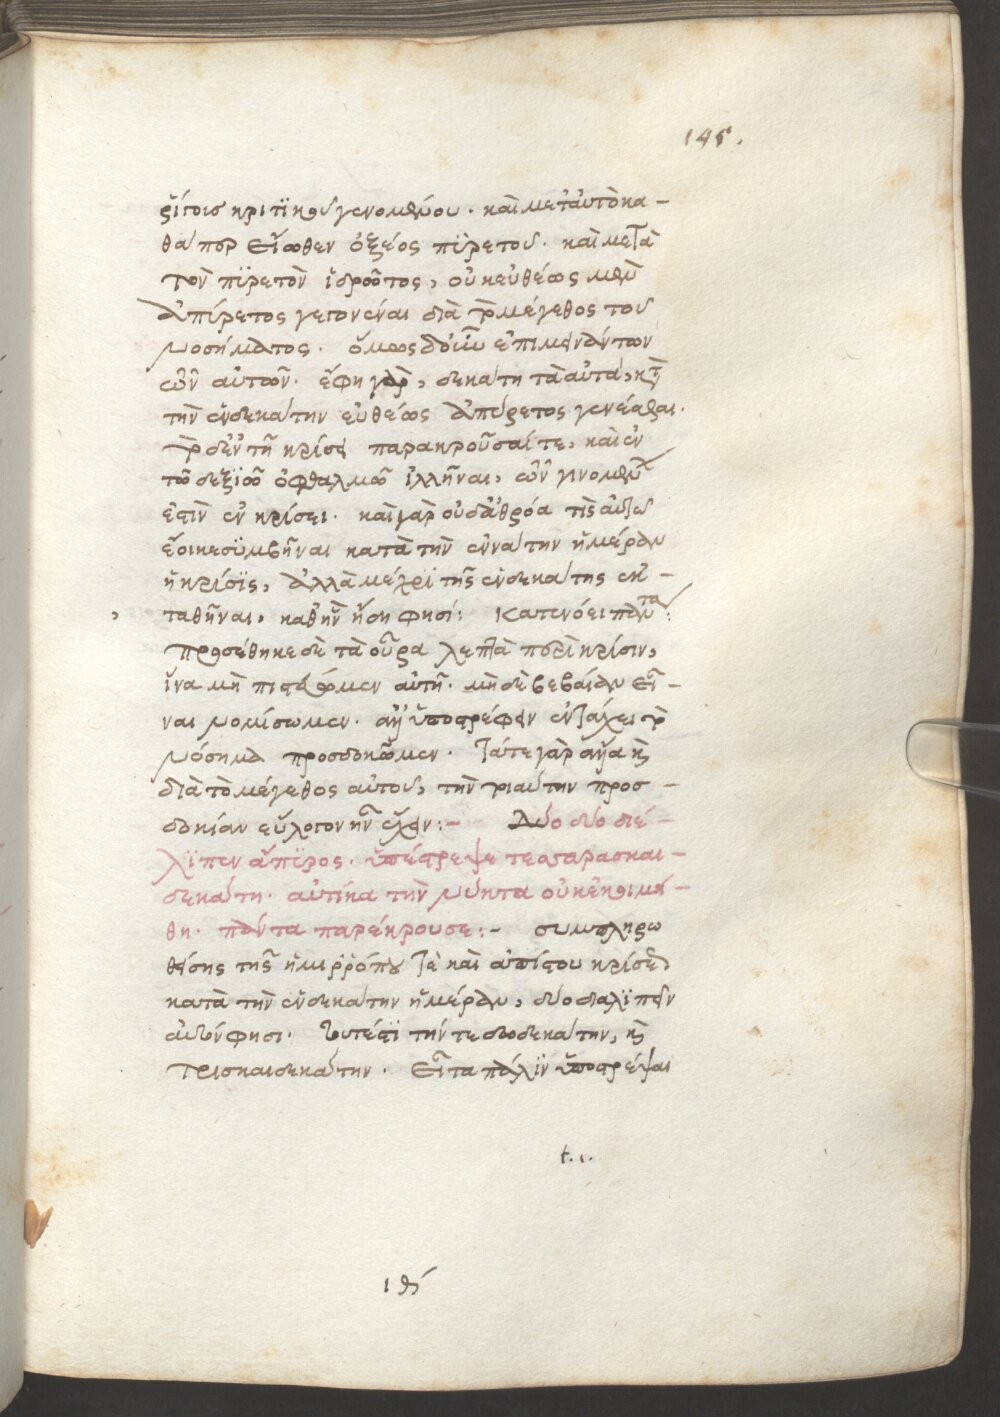 145.
ῥίγους κριτικοῦ γενομένου. καὶ μετ' αὐτὸ κα-
θάπερ εἴωθεν ὀξέος πυρετοῦ. καὶ μετὰ
τὸν πυρετὸν ἱδρῶτος, οὐκ εὐθέως μὲν
ἀπύρετος γέγονέναι διὰ τὸ μέγεθος τοῦ
νοσήματος. ὅμως ἐπιμενόντων
αὐτῶν. ἔφη γὰρ, δεκάτη τὰ αὐτὰ, κατὰ
τὴν ἑνδεκάτην εὐθέως ἀπύρετος γενέσθαι.
τὸ δ' ἐν τῇ κρίσει παρακροῦσαί τε, καὶ ἐν
τῷ δεξιῷ ὀφθαλμῷ ἰλλῆναι, τῶν γινομένων
ἐστὶν ἐν κρίσει. καὶ γὰρ οὐδ' ἀθρόα τις αὐτῷ
ἔοικε συμβῆναι κατὰ τὴν ἐννάτην ἡμέραν
ἡ κρίσις, ἀλλὰ μέχρι τῆς ἑνδεκάτης ἐκ-
ταθῆναι, καθ' ἣν ἤδη φησί: κατενόει πάντα:
προσέθηκε δὲ τὰ οὖρα λεπτὰ περὶ κρίσιν,
ἵνα μὴ πιστεύωμεν αὐτῇ. μὴ δὲ βεβαίαν εἶ-
ναι νομίσωμεν. ἀλλ' ὑποστρέφειν ἐν τάχει τὸ
νόσημα προσδοκῶμεν. τά τε γὰρ ἄλλα καὶ
διὰ τὸ μέγεθος αὐτοῦ, τὴν τοιαύτην προσ-
δοκίαν εὔλογον ἦν ἔχειν:- Δύο δύο διέ-
λιπεν ἄπυρος. ὑπέστρεψε τεσσαρασκαι-
δεκάτη. αὐτίκα τὴν νύκτα οὐκ ἐκοιμή-
θη. πάντα παρέκρουσε:- συμπληρω
θείσης τῆς ἡμιρρόπου τε καὶ ἀπίστου κρίσεως
κατὰ τὴν ἑνδεκάτην ἡμέραν, δύο διαλιπεῖν
αὐτόν φησι. τουτέστι τήν τε δωδεκάτην, καὶ
τρισκαιδεκάτην. εἶτα πάλιν ὑποστρέψαι
t.i.